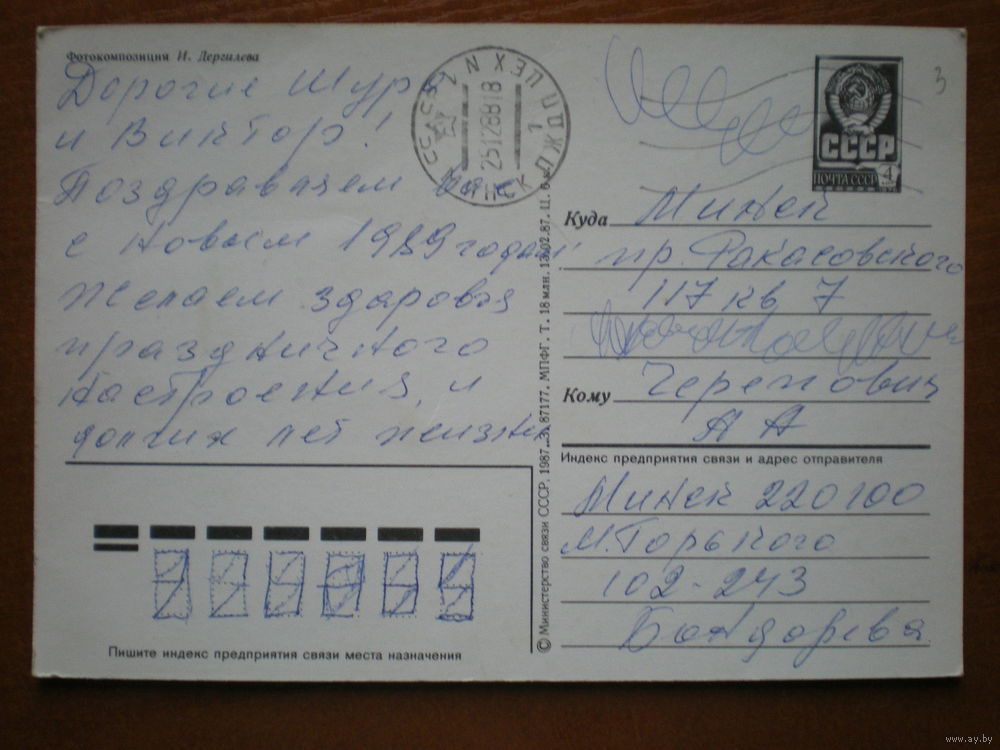 Фотокомпозиция И. Дергилева
Дорогие Шура
и Виктор!
Поздравляем Вас
с новым 1989 годом
Желаем здоровья
праздничного
настроения, и
долгих лет жизни
МИНСК
ПЖДП ЦЕХ N 1
25128818
СССР
ПОЧТА СССР 4
3
Куда Минск
пр. Ракасовского
117 кв 7
Кому Черепович
А А
Индекс предприятия связи и адрес отправителя
Минск 220100
М. Горького
102-243
Бондарева
Пишите индекс предприятия связи места назначения
© Министерство связи СССР, 1987. З. 87177. МПФГ. Т. 18 млн. 13.02.87. Ц. 6 к.
www.ay.by